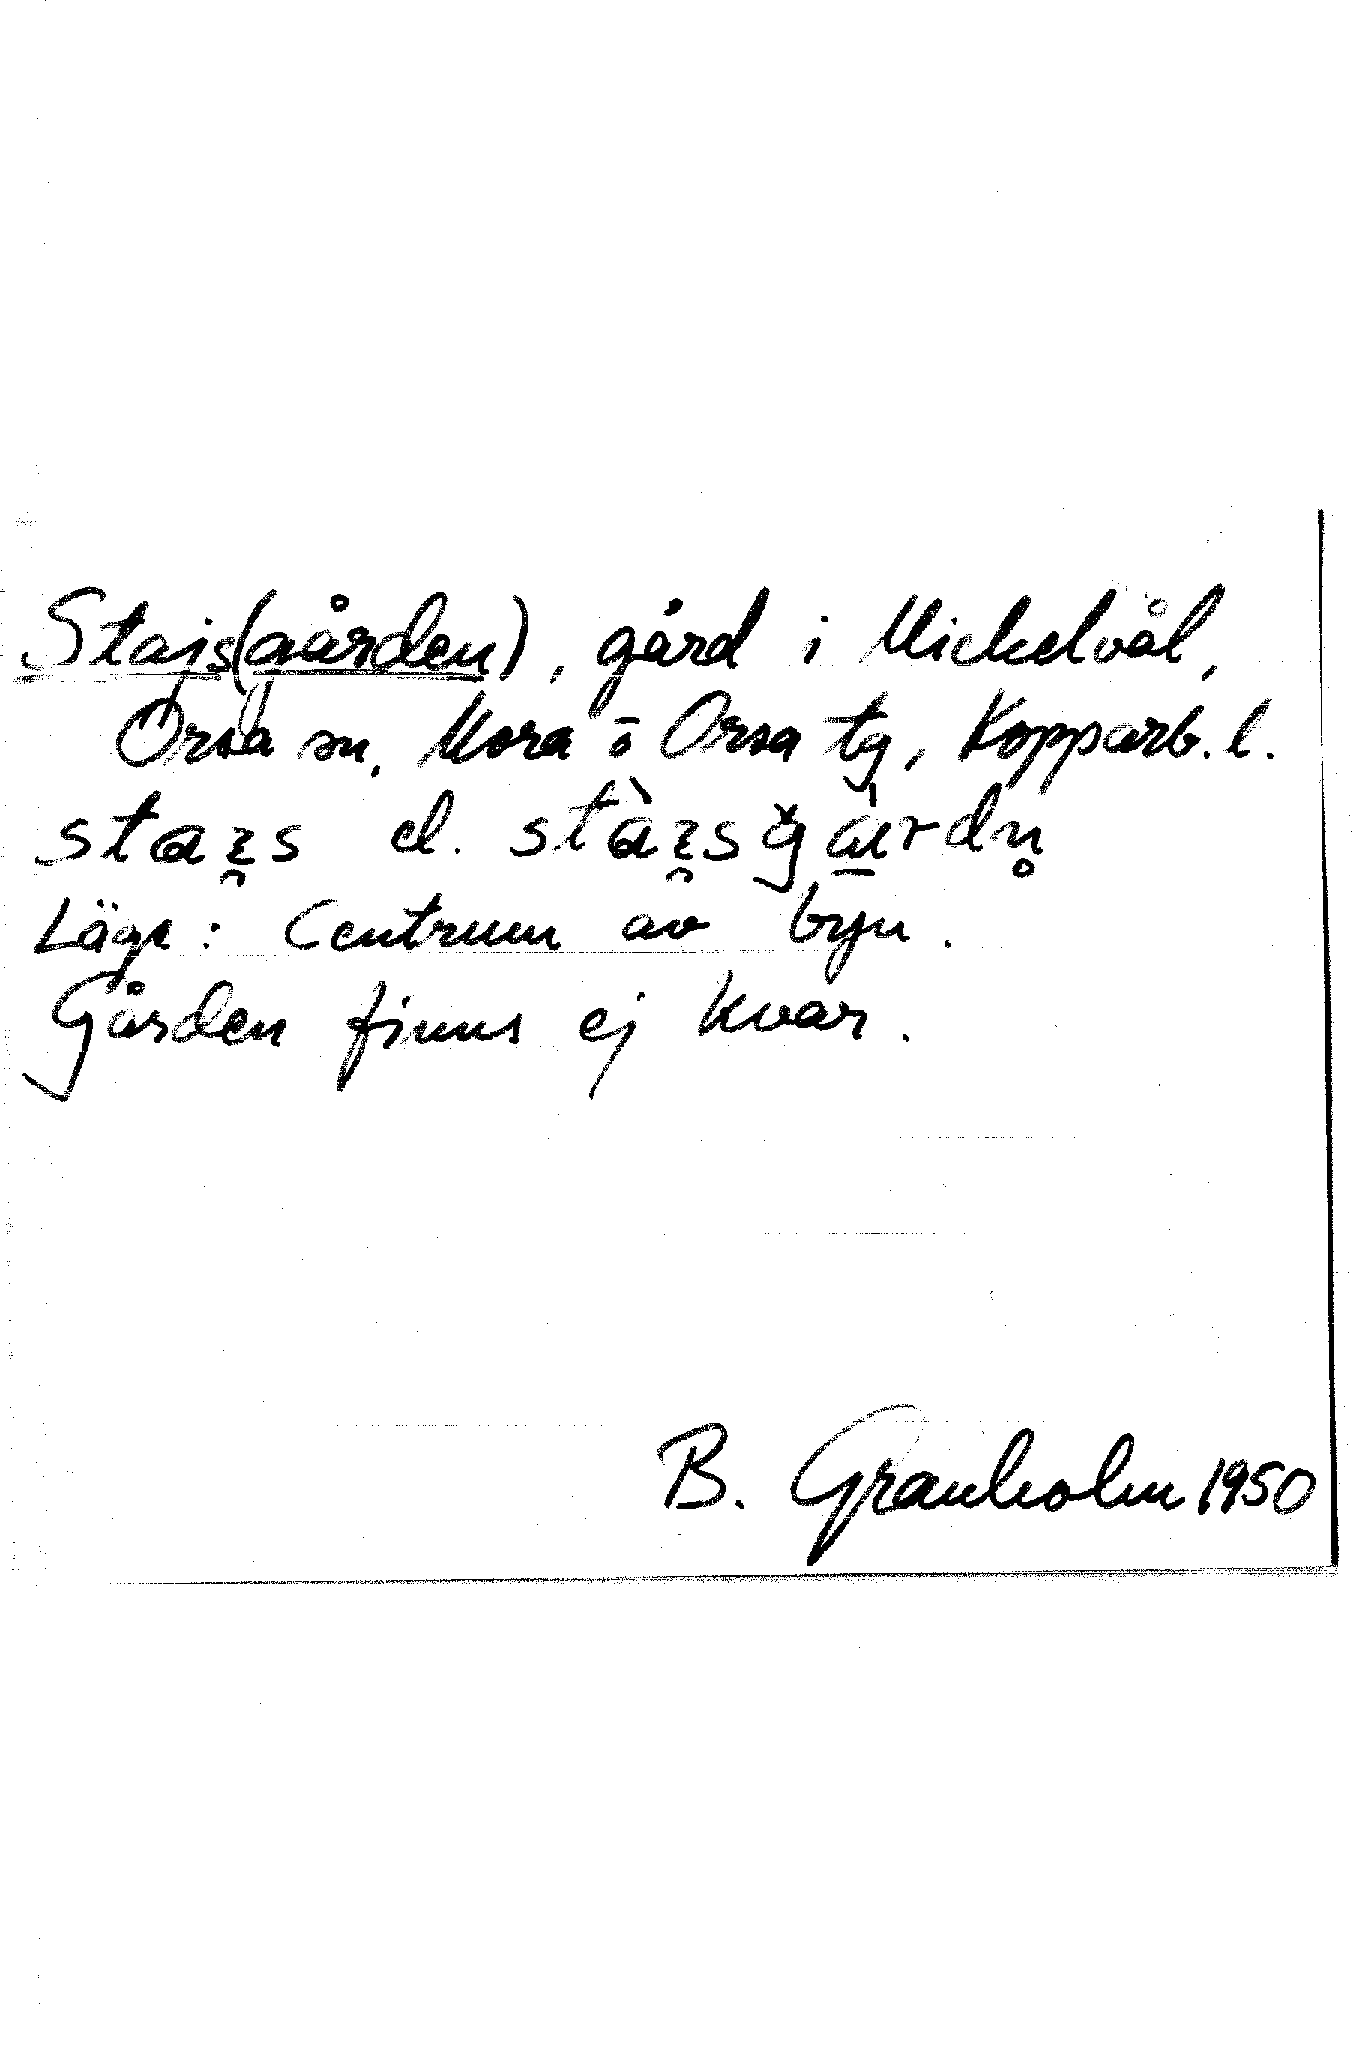 Stajs(gården), gård i Mickelvål,
Orsa sn, Mora o Orsa tg, Kopparb. l.
el.
Läge: Centrum av byn.
Gården finns ej kvar.
B. Granholm 1950